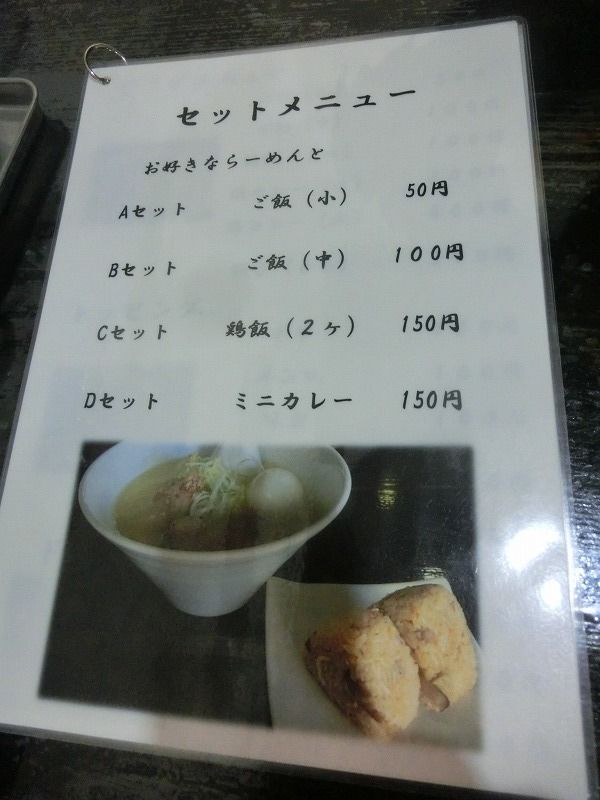 セットメニュー
お好きならーめんと
Aセット ご飯(小) 50円
Bセット ご飯(中) 100円
Cセット 鶏飯(2ヶ) 150円
Dセット ミニカレー 150円